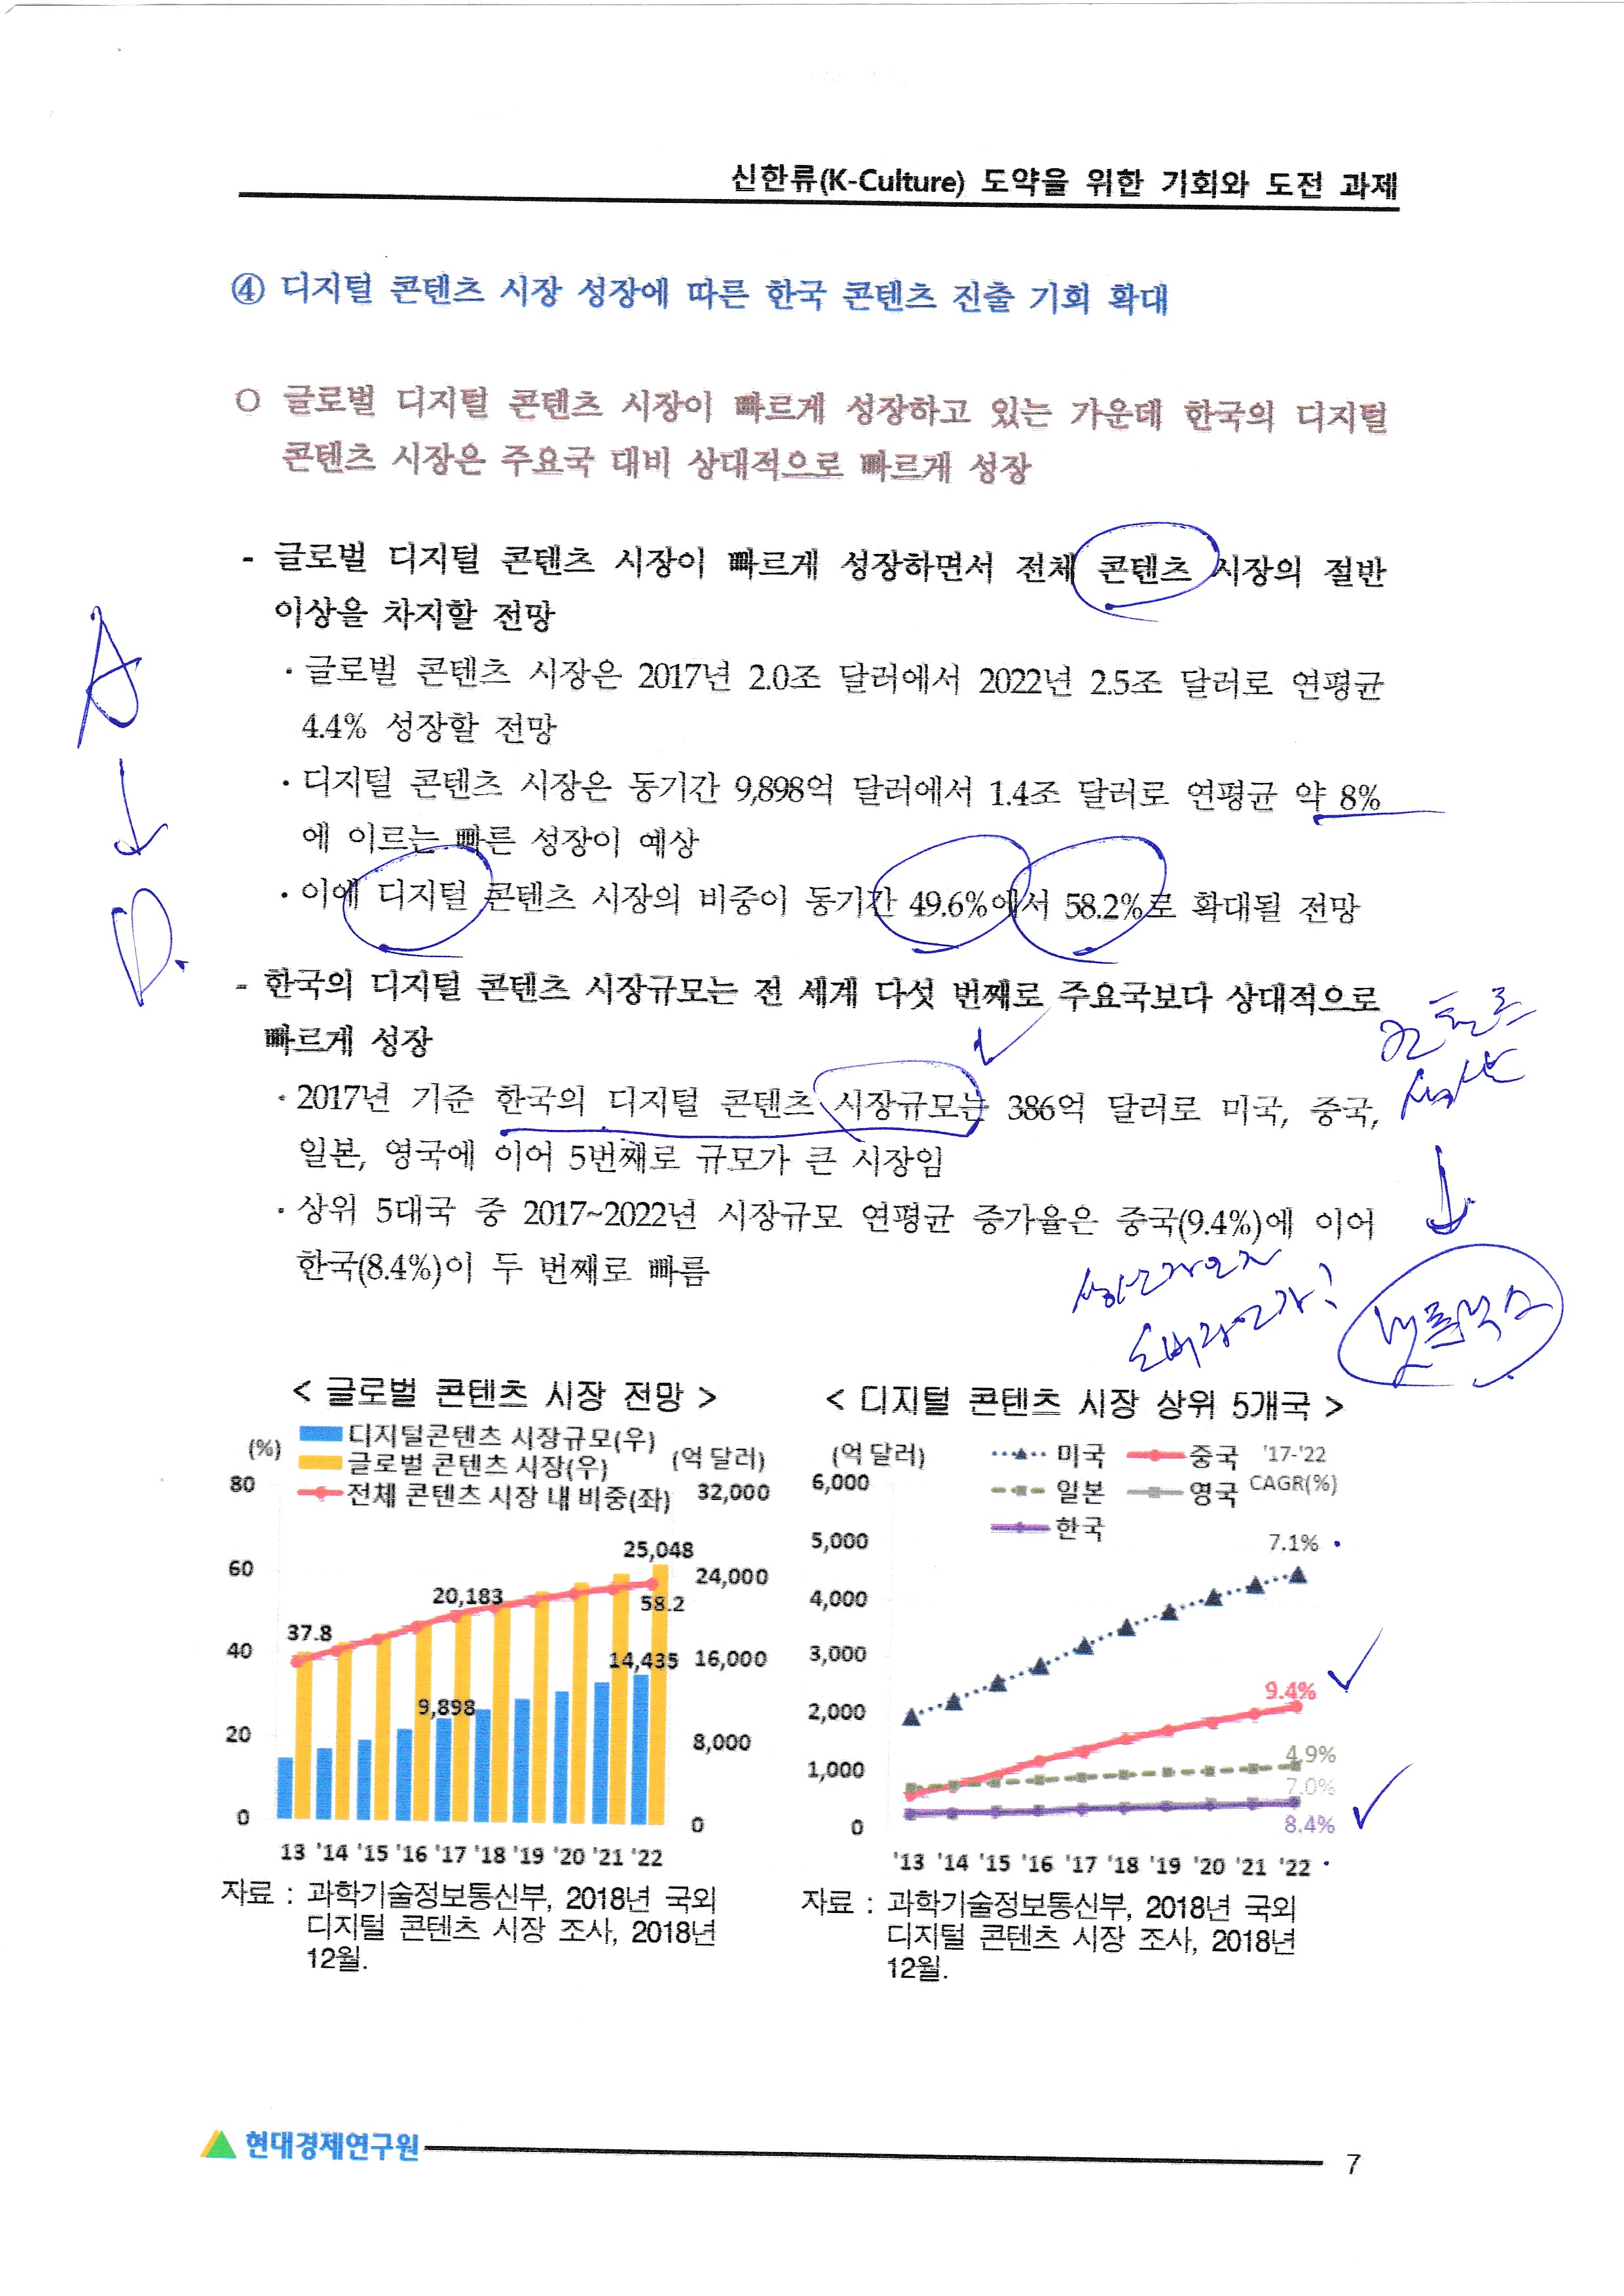 신한류(K-Culture) 도약을 위한 기회와 도전 과제
④ 디지털 콘텐츠 시장 성장에 따른 한국 콘텐츠 진출 기회 확대
○ 글로벌 디지털 콘텐츠 시장이 빠르게 성장하고 있는 가운데 한국의 디지털
콘텐츠 시장은 주요국 대비 상대적으로 빠르게 성장
- 글로벌 디지털 콘텐츠 시장이 빠르게 성장하면서 전체 콘텐츠 시장의 절반
이상을 차지할 전망
· 글로벌 콘텐츠 시장은 2017년 2.0조 달러에서 2022년 2.5조 달러로 연평균
4.4% 성장할 전망
· 디지털 콘텐츠 시장은 동기간 9,898억 달러에서 1.4조 달러로 연평균 약 8%
에 이르는 빠른 성장이 예상
· 이에 디지털 콘텐츠 시장의 비중이 동기간 49.6%에서 58.2%로 확대될 전망
A
D.
- 한국의 디지털 콘텐츠 시장규모는 전 세계 다섯 번째로 주요국보다 상대적으로
빠르게 성장
· 2017년 기준 한국의 디지털 콘텐츠 시장규모는 386억 달러로 미국, 중국,
일본, 영국에 이어 5번째로 규모가 큰 시장임
· 상위 5대국 중 2017~2022년 시장규모 연평균 증가율은 중국(9.4%)에 이어
한국(8.4%)이 두 번째로 빠름
넷플릭스
< 글로벌 콘텐츠 시장 전망 >
디지털콘텐츠 시장규모(우)
글로벌 콘텐츠 시장(우)
전체 콘텐츠 시장 내 비중(좌)
(%)
(억 달러)
80
60
40
20
0
32,000
24,000
16,000
8,000
0
37.8
20,183
25,048
58.2
9,898
14,435
13 '14 '15 '16 '17 '18 '19 '20 '21 '22
자료 : 과학기술정보통신부, 2018년 국외
디지털 콘텐츠 시장 조사, 2018년
12월.
< 디지털 콘텐츠 시장 상위 5개국 >
(억 달러)
미국 중국 '17-'22
일본 영국 CAGR(%)
한국
6,000
5,000
4,000
3,000
2,000
1,000
0
7.1%
9.4%
4.9%
7.0%
8.4%
'13 '14 '15 '16 '17 '18 '19 '20 '21 '22
자료 : 과학기술정보통신부, 2018년 국외
디지털 콘텐츠 시장 조사, 2018년
12월.
현대경제연구원
7